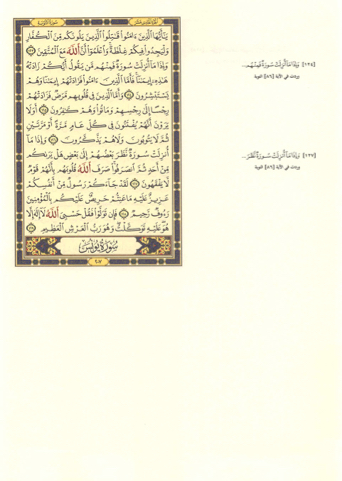 يَٰٓأَيُّهَا ٱلَّذِينَ ءَامَنُواْ قَٰتِلُواْ ٱلَّذِينَ يَلُونَكُم مِّنَ ٱلۡكُفَّارِ
وَلۡيَجِدُواْ فِيكُمۡ غِلۡظَةٗۚ وَٱعۡلَمُوٓاْ أَنَّ ٱللَّهَ مَعَ ٱلۡمُتَّقِينَ ١٢٣
وَإِذَا مَآ أُنزِلَتۡ سُورَةٞ فَمِنۡهُم مَّن يَقُولُ أَيُّكُمۡ زَادَتۡهُ
هَٰذِهِۦٓ إِيمَٰنٗاۚ فَأَمَّا ٱلَّذِينَ ءَامَنُواْ فَزَادَتۡهُمۡ إِيمَٰنٗا وَهُمۡ
يَسۡتَبۡشِرُونَ ١٢٤ وَأَمَّا ٱلَّذِينَ فِي قُلُوبِهِم مَّرَضٞ فَزَادَتۡهُمۡ
رِجۡسًا إِلَىٰ رِجۡسِهِمۡ وَمَاتُواْ وَهُمۡ كَٰفِرُونَ ١٢٥ أَوَلَا
يَرَوۡنَ أَنَّهُمۡ يُفۡتَنُونَ فِي كُلِّ عَامٖ مَّرَّةً أَوۡ مَرَّتَيۡنِ
ثُمَّ لَا يَتُوبُونَ وَلَا هُمۡ يَذَّكَّرُونَ ١٢٦ وَإِذَا مَآ
أُنزِلَتۡ سُورَةٞ نَّظَرَ بَعۡضُهُمۡ إِلَىٰ بَعۡضٍ هَلۡ يَرَىٰكُم
مِّنۡ أَحَدٖ ثُمَّ ٱنصَرَفُواْۚ صَرَفَ ٱللَّهُ قُلُوبَهُم بِأَنَّهُمۡ قَوۡمٞ
لَّا يَفۡقَهُونَ ١٢٧ لَقَدۡ جَآءَكُمۡ رَسُولٞ مِّنۡ أَنفُسِكُمۡ
عَزِيزٌ عَلَيۡهِ مَا عَنِتُّمۡ حَرِيصٌ عَلَيۡكُم بِٱلۡمُؤۡمِنِينَ
رَءُوفٞ رَّحِيمٞ ١٢٨ فَإِن تَوَلَّوۡاْ فَقُلۡ حَسۡبِيَ ٱللَّهُ لَآ إِلَٰهَ إِلَّا
هُوَۖ عَلَيۡهِ تَوَكَّلۡتُۖ وَهُوَ رَبُّ ٱلۡعَرۡشِ ٱلۡعَظِيمِ ١٢٩
سُورَةُ يُونُسَ
٢٠٧
[١٢٤] وَإِذَا مَآ أُنزِلَتۡ سُورَةٞ فَمِنۡهُم...
في الآية [٨٦] التوبة
[١٢٧] وَإِذَا مَآ أُنزِلَتۡ سُورَةٞ نَّظَرَ...
في الآية [٨٦] التوبة